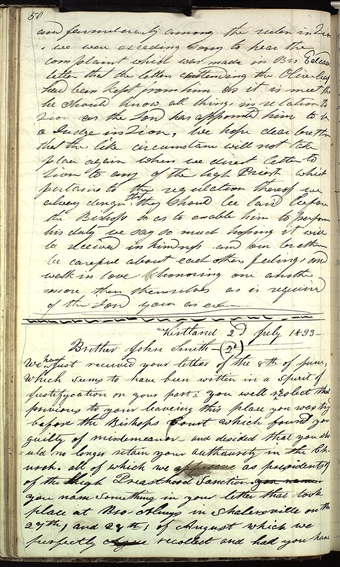 50
and fervent charity among the elders in Zion
we were exceding sorry to hear the
complaint which was made in Bro Edward
letter that the letters containing the Olive leaf
had been kept from him as it is meet that
he should know all things in relation to
Zion as the Lord has appointed him to be
a Judge in Zion, We hope dear brethren
that the like circumstance will not take
place again when we direct letters to
Zion to any of the high Priests which
pertains to the regulation thereof we
always design they should be laid before
the Bishop so as to enable him to perform
his duty we say so much hoping it will
be received in kindness and our brethren
be careful about each others feelings and
walk in love honoring one another
more than themselves as is required
of the Lord yours as ever
Kirtland 2nd July 1833
Brother John Smith
We have just received your letter of the 8th of June,
Which seems to have been written in a Spirit of
justification on your part. you will Recolect that
previous to your leaveing this place you was tryed
before the Bishops Court which found you
guilty of misdemeanor and decided that you sho
uld no longer retain your authority in the Ch
urch. all of which we as presidents
of the high Preasthood Sanction
you name Something in your letter that took
place at in on the
27th, and 28th, of August which we
perfectly recolect and had you have